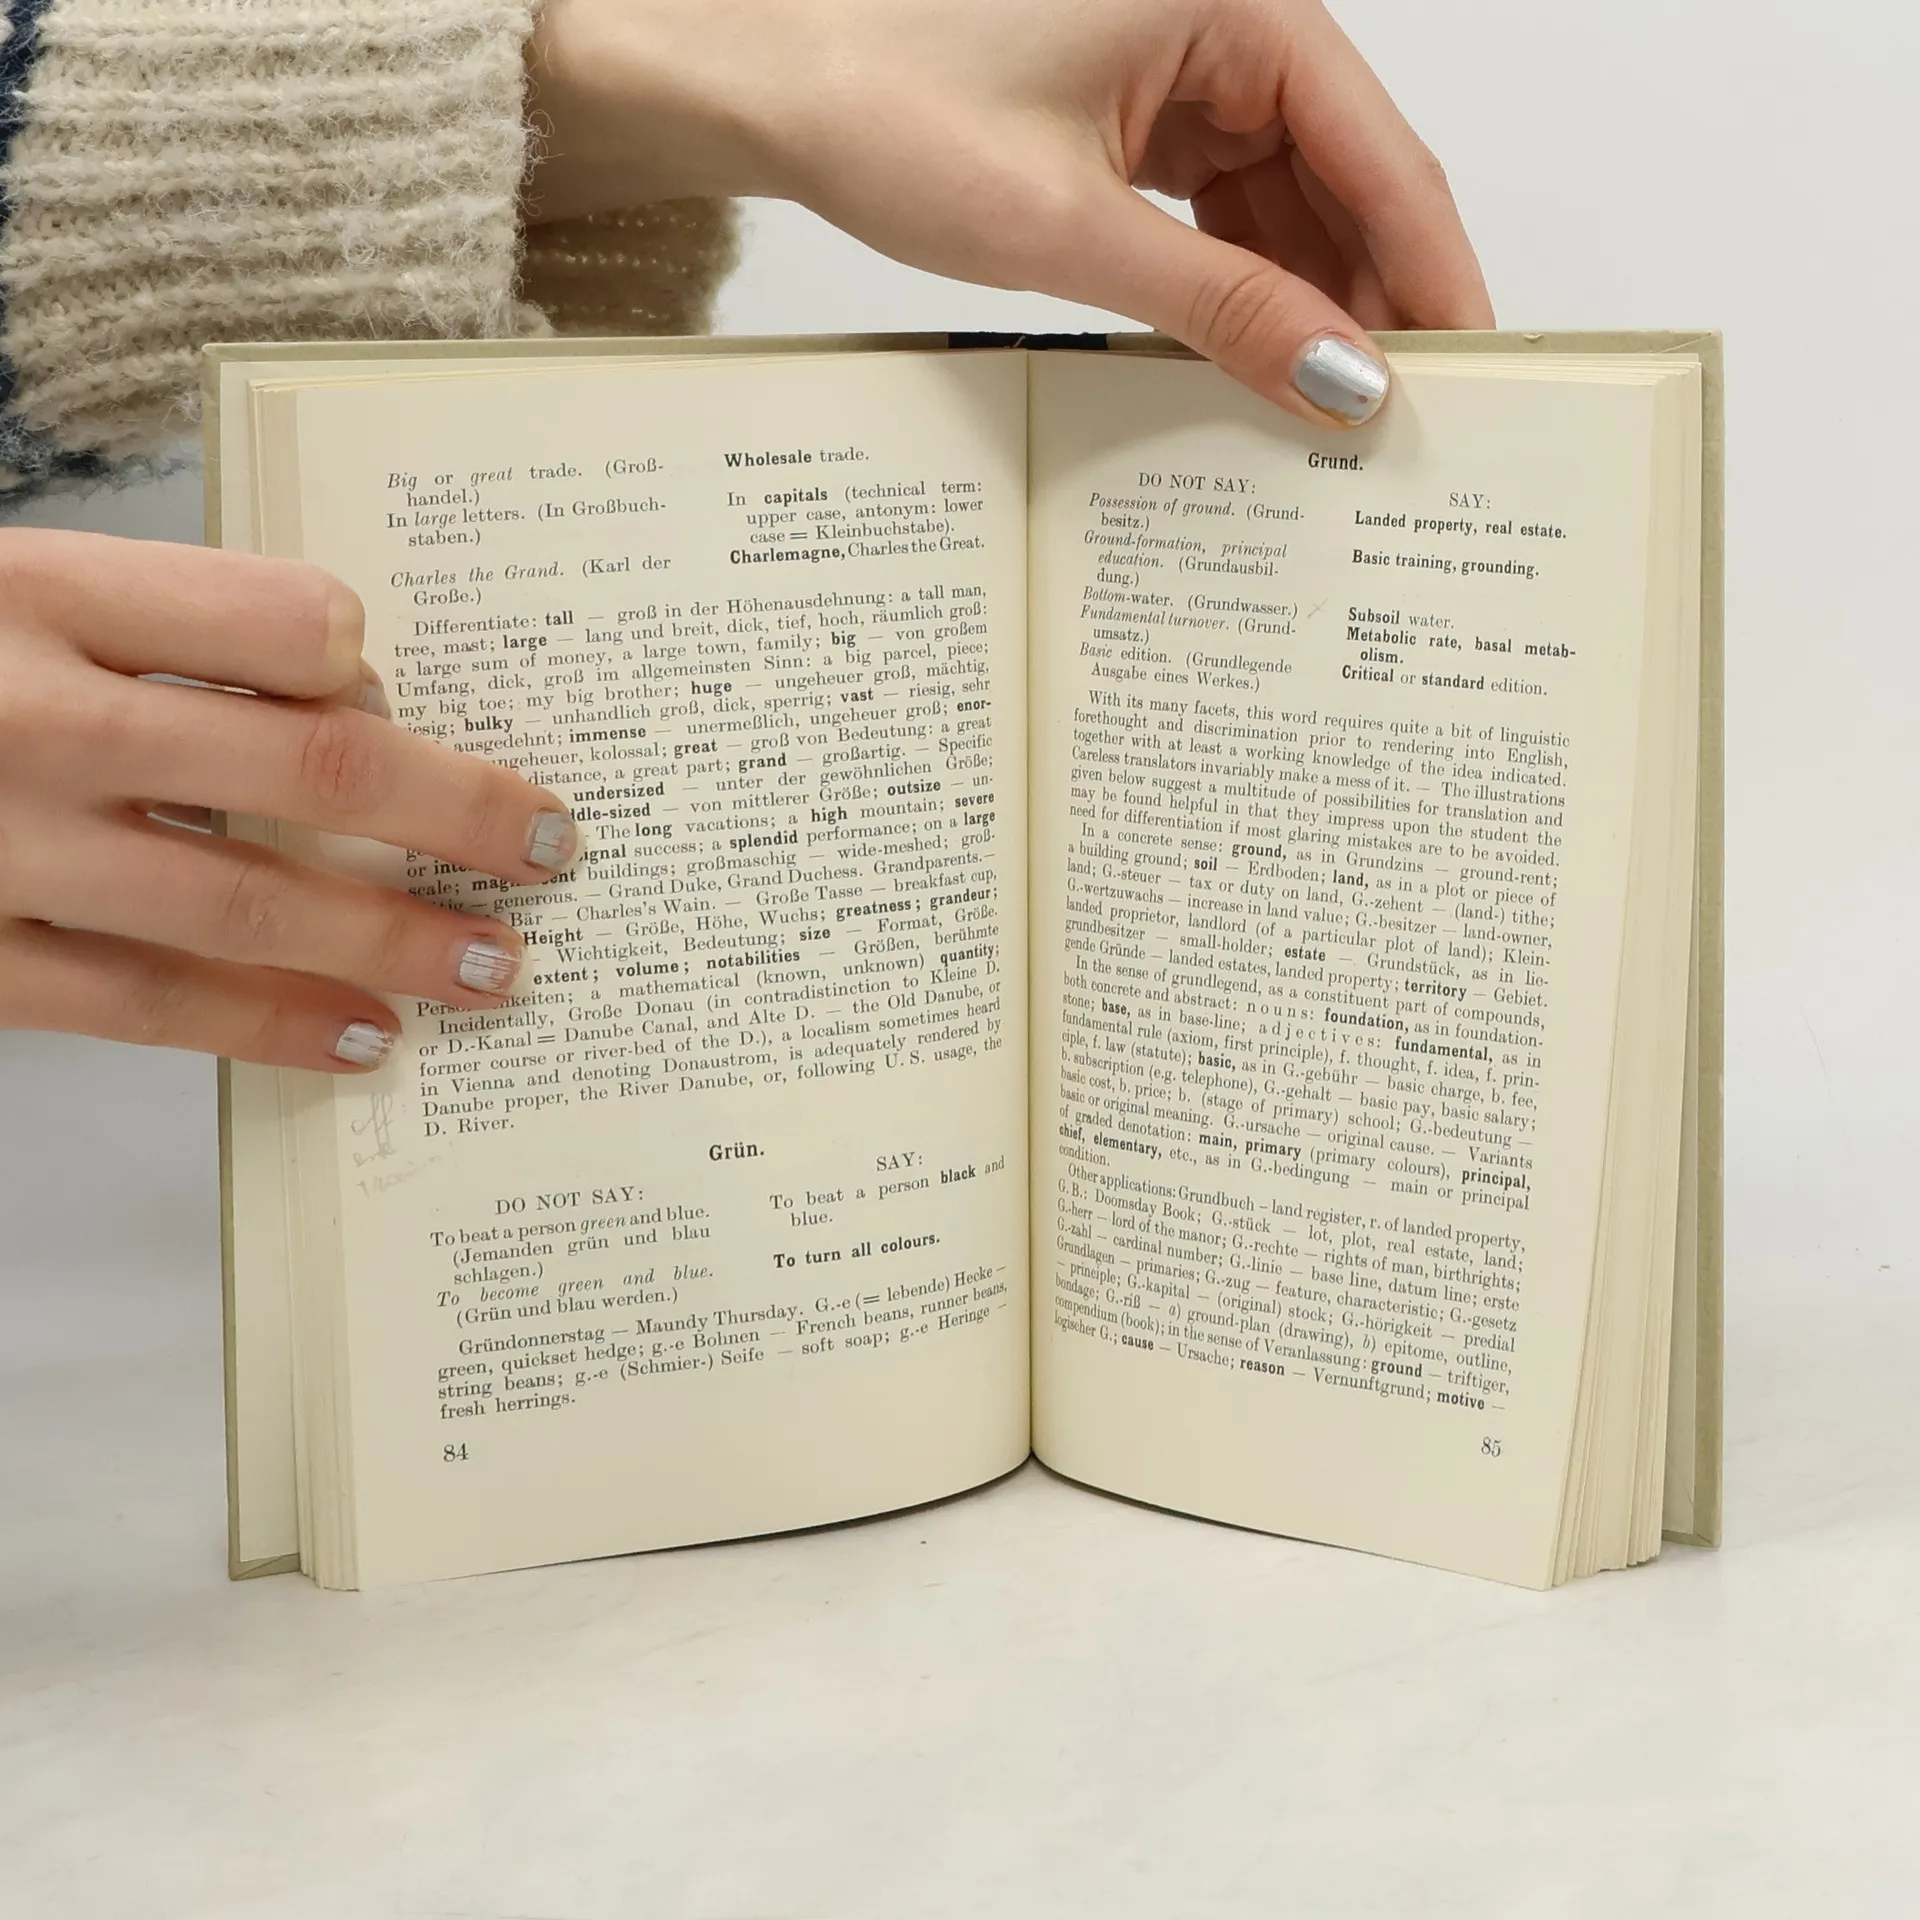 Big or great trade. (Groß-
handel.)
In large letters. (In Großbuch-
staben.)
Charles the Grand. (Karl der
Große.)
Wholesale trade.
In capitals (technical term:
upper case, antonym: lower
case = Kleinbuchstabe).
Charlemagne, Charles the Great.
Differentiate: tall — groß in der Höhenausdehnung: a tall man,
tree, mast; large — lang und breit, dick, tief, hoch, räumlich groß:
a large sum of money, a large town, family; big — von großem
Umfang, dick, groß im allgemeinsten Sinn: a big parcel, piece;
my big toe; my big brother; huge — ungeheuer groß, mächtig,
riesig; bulky — unhandlich groß, dick, sperrig; vast — riesig, sehr
ausgedehnt; immense — unermeßlich, ungeheuer groß; enor-
ngeheuer, kolossal; great — groß von Bedeutung: a great
distance, a great part; grand — großartig. — Specific
undersized — unter der gewöhnlichen Größe;
ddle-sized — von mittlerer Größe; outsize — un-
— The long vacations; a high mountain; severe
or signal success; a splendid performance; on a large
scale; buildings; großmaschig — wide-meshed; groß-
— generous. — Grand Duke, Grand Duchess. Grandparents.—
Bär — Charles's Wain. — Große Tasse — breakfast cup,
Height — Größe, Höhe, Wuchs; greatness; grandeur;
— Wichtigkeit, Bedeutung; size — Format, Größe.
extent; volume; notabilities — Größen, berühmte
keiten; a mathematical (known, unknown) quantity;
Incidentally, Große Donau (in contradistinction to Kleine D.
or D.-Kanal = Danube Canal, and Alte D. — the Old Danube, or
former course or river-bed of the D.), a localism sometimes heard
in Vienna and denoting Donaustrom, is adequately rendered by
Danube proper, the River Danube, or, following U. S. usage, the
D. River.
Grün.
DO NOT SAY:
To beat a person green and blue.
(Jemanden grün und blau
schlagen.)
To become green and blue.
(Grün und blau werden.)
SAY:
To beat a person black and
blue.
To turn all colours.
Gründonnerstag — Maundy Thursday. G.-e (= lebende) Hecke —
green, quickset hedge; g.-e Bohnen — French beans, runner beans,
string beans; g.-e (Schmier-) Seife — soft soap; g.-e Heringe —
fresh herrings.
84
Grund.
DO NOT SAY:
Possession of ground. (Grund-
besitz.)
Ground-formation, principal
education. (Grundausbil-
dung.)
Bottom-water. (Grundwasser.)
Fundamental turnover. (Grund-
umsatz.)
Basic edition. (Grundlegende
Ausgabe eines Werkes.)
SAY:
Landed property, real estate.
Basic training, grounding.
Subsoil water.
Metabolic rate, basal metab-
olism.
Critical or standard edition.
With its many facets, this word requires quite a bit of linguistic
forethought and discrimination prior to rendering into English,
together with at least a working knowledge of the idea indicated.
Careless translators invariably make a mess of it. — The illustrations
given below suggest a multitude of possibilities for translation and
may be found helpful in that they impress upon the student the
need for differentiation if most glaring mistakes are to be avoided.
In a concrete sense: ground, as in Grundzins — ground-rent;
a building ground; soil — Erdboden; land, as in a plot or piece of
land; G.-steuer — tax or duty on land, G.-zehent — (land-) tithe;
G.-wertzuwachs — increase in land value; G.-besitzer — land-owner,
landed proprietor, landlord (of a particular plot of land); Klein-
grundbesitzer — small-holder; estate — Grundstück, as in lie-
gende Gründe — landed estates, landed property; territory — Gebiet.
In the sense of grundlegend, as a constituent part of compounds,
both concrete and abstract: nouns: foundation, as in foundation-
stone; base, as in base-line; adjectives: fundamental, as in
fundamental rule (axiom, first principle), f. thought, f. idea, f. prin-
ciple, f. law (statute); basic, as in G.-gebühr — basic charge, b. fee,
b. subscription (e.g. telephone), G.-gehalt — basic pay, basic salary;
basic cost, b. price; b. (stage of primary) school; G.-bedeutung —
basic or original meaning. G.-ursache — original cause. — Variants
of graded denotation: main, primary (primary colours), principal,
chief, elementary, etc., as in G.-bedingung — main or principal
condition.
Other applications: Grundbuch – land register, r. of landed property,
G. B.: Doomsday Book; G.-stück — lot, plot, real estate, land;
G.-herr – lord of the manor; G.-rechte — rights of man, birthrights;
G.-zahl — cardinal number; G.-linie — base line, datum line; erste
Grundlagen — primaries; G.-zug — feature, characteristic; G.-gesetz
— principle; G.-kapital — (original) stock; G.-hörigkeit — predial
bondage; G.-riß — a) ground-plan (drawing), b) epitome, outline,
compendium (book); in the sense of Veranlassung: ground — triftiger,
logischer G.; cause — Ursache; reason — Vernunftgrund; motive —
85